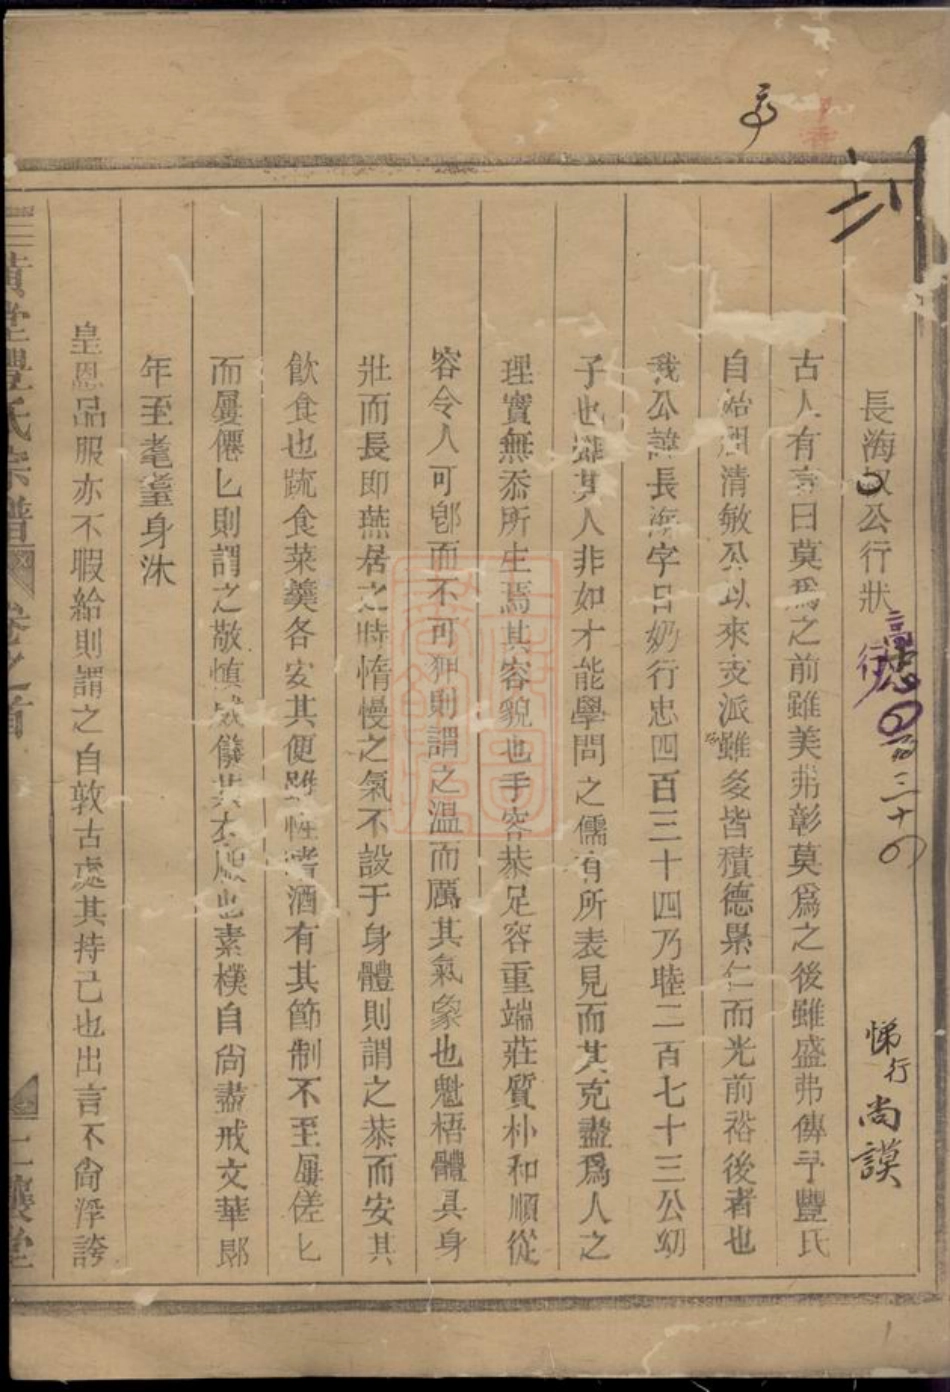 長海奴公行狀
悌行尚謨
古人有言曰莫爲之前雖美弗彰莫爲之後雖盛弗傳予豐氏
自始祖清敏公以來支派雖多皆積德累仁而光前裕後者也
我公諱長海字日奶行忠四百三十四乃睦二百七十三公幼
子也雖其人非如才能學問之儒有所表見而其克盡爲人之
理實無忝所生焉其容貌也手容恭足容重端莊質朴和順從
容令人可卽而不可狎則謂之温而厲其氣象也魁梧體具身
壯而長即燕居之時惰慢之氣不設于身體則謂之恭而安其
飲食也疏食菜羹各安其便雖性嗜酒有其節制不至屢傞匕
而屢僊匕則謂之敬慎威儀其衣服也素樸自尙盡戒文華郎
年至耄耋身沐
皇恩品服亦不暇給則謂之自敦古處其持己也出言不尙浮誇
三貢堂豐氏宗譜 卷之首